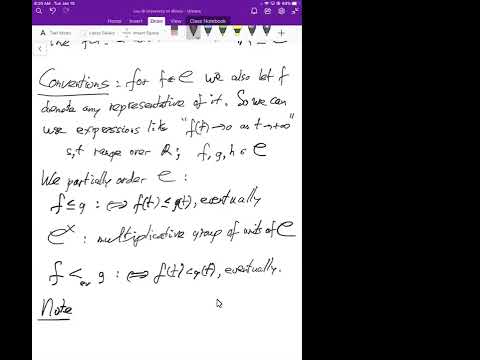 6:35 AM Tue Jan 10
Lou @ University of Illinois - Urbana
Home Insert Draw View Class Notebook
Text Mode Lasso Select Insert Space
Conventions: for f∈C we also let f
denote any representative of it. So we can
use expressions like "f(t)→0 as t→+∞"
s,t range over R; f,g,h ∈ C
We partially order C:
f ≤ g :⇔ f(t) ≤ g(t), eventually
C^×: multiplicative group of units of C
f <_ev g :⇔ f(t) < g(t), eventually.
Note